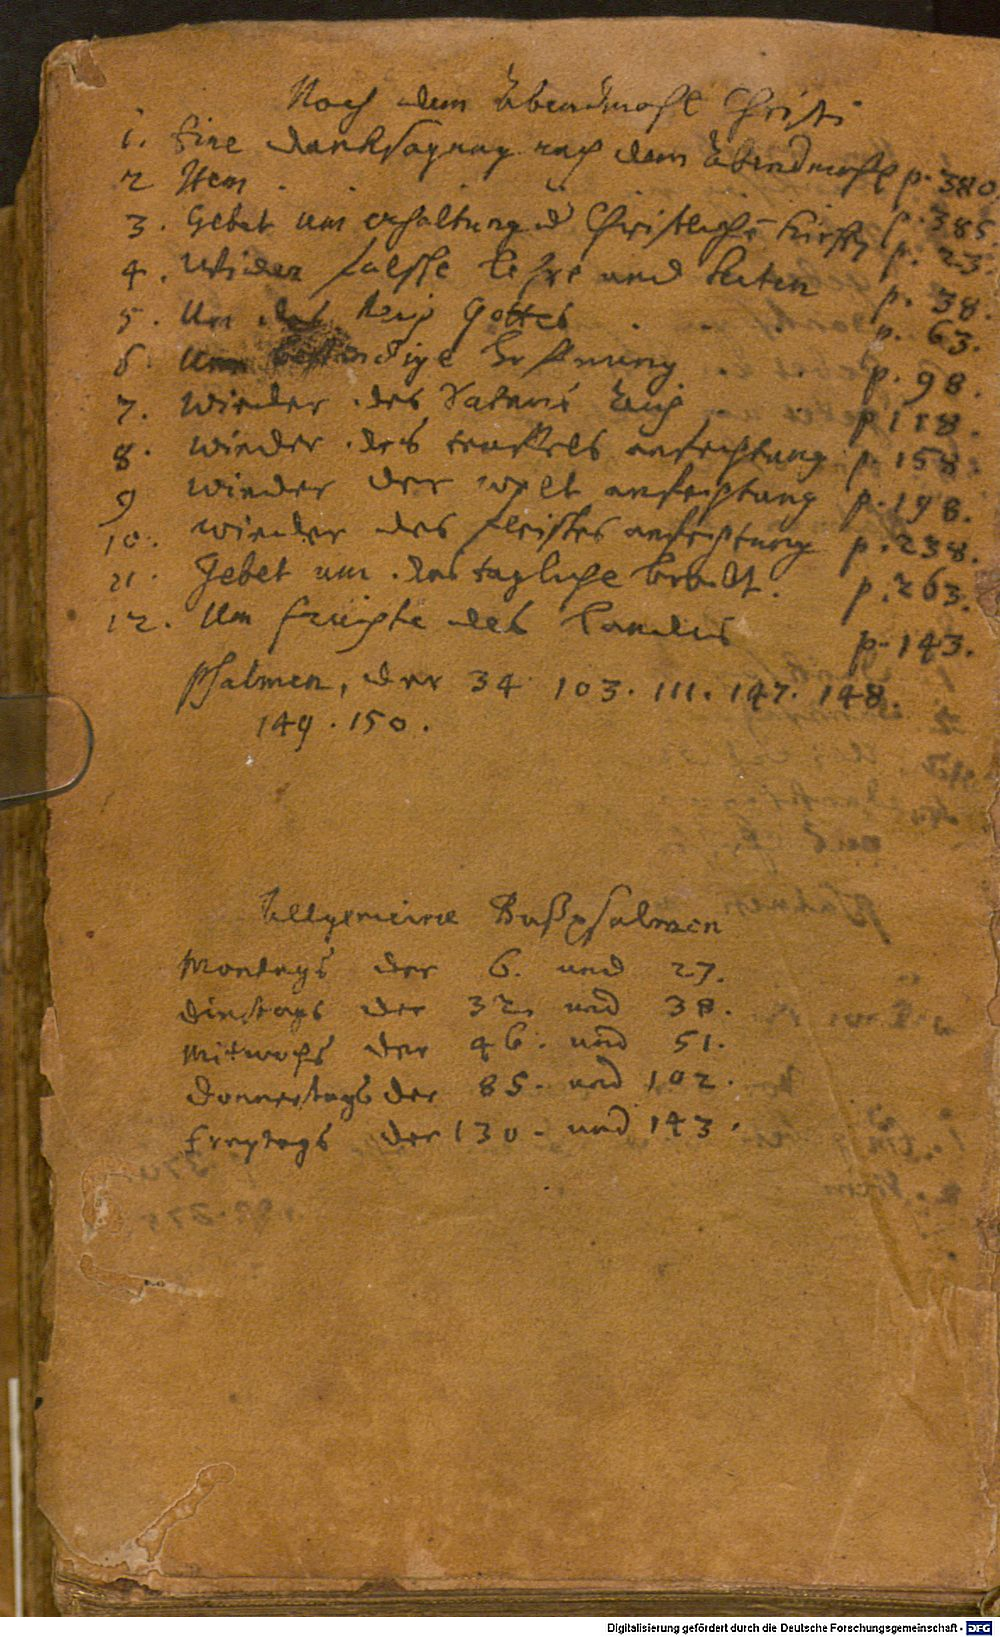 Nach dem Abendmahl Christi
1. Eine danksagung nach dem Abendmahl p. 380
2 Item . . . p. 385.
3. Gebet um erhaltung d Christliche Kirche p. 23.
4. Wider falsche Lehre und p. 38.
5. Um das Reich Gottes . p. 63.
6. Um beständige Hoffnung p. 98.
7. Wieder des Satans Reich p 118.
8. wieder des teuffels anfechtung p. 158.
9 wieder der welt anfechtung p. 198.
10. wieder des fleisches anfechtung p. 238.
11. Gebet um das tagliche brodt. p. 263.
12. Um früchte des Landes p. 143.
Psalmen, der 34 103. 111. 147. 148.
149. 150.
Allgemeine Bußpsalmen
Montags der 6. und 27.
dinstags der 32. und 38.
Mitwochs der 46. und 51.
Donnerstags der 85. und 102.
freytags der 130. und 143.
Digitalisierung gefördert durch die Deutsche Forschungsgemeinschaft - DFG